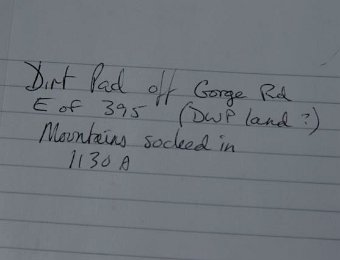 Dirt Pad off Gorge Rd
E of 395 (DWP land ?)
Mountains socked in
1130 A